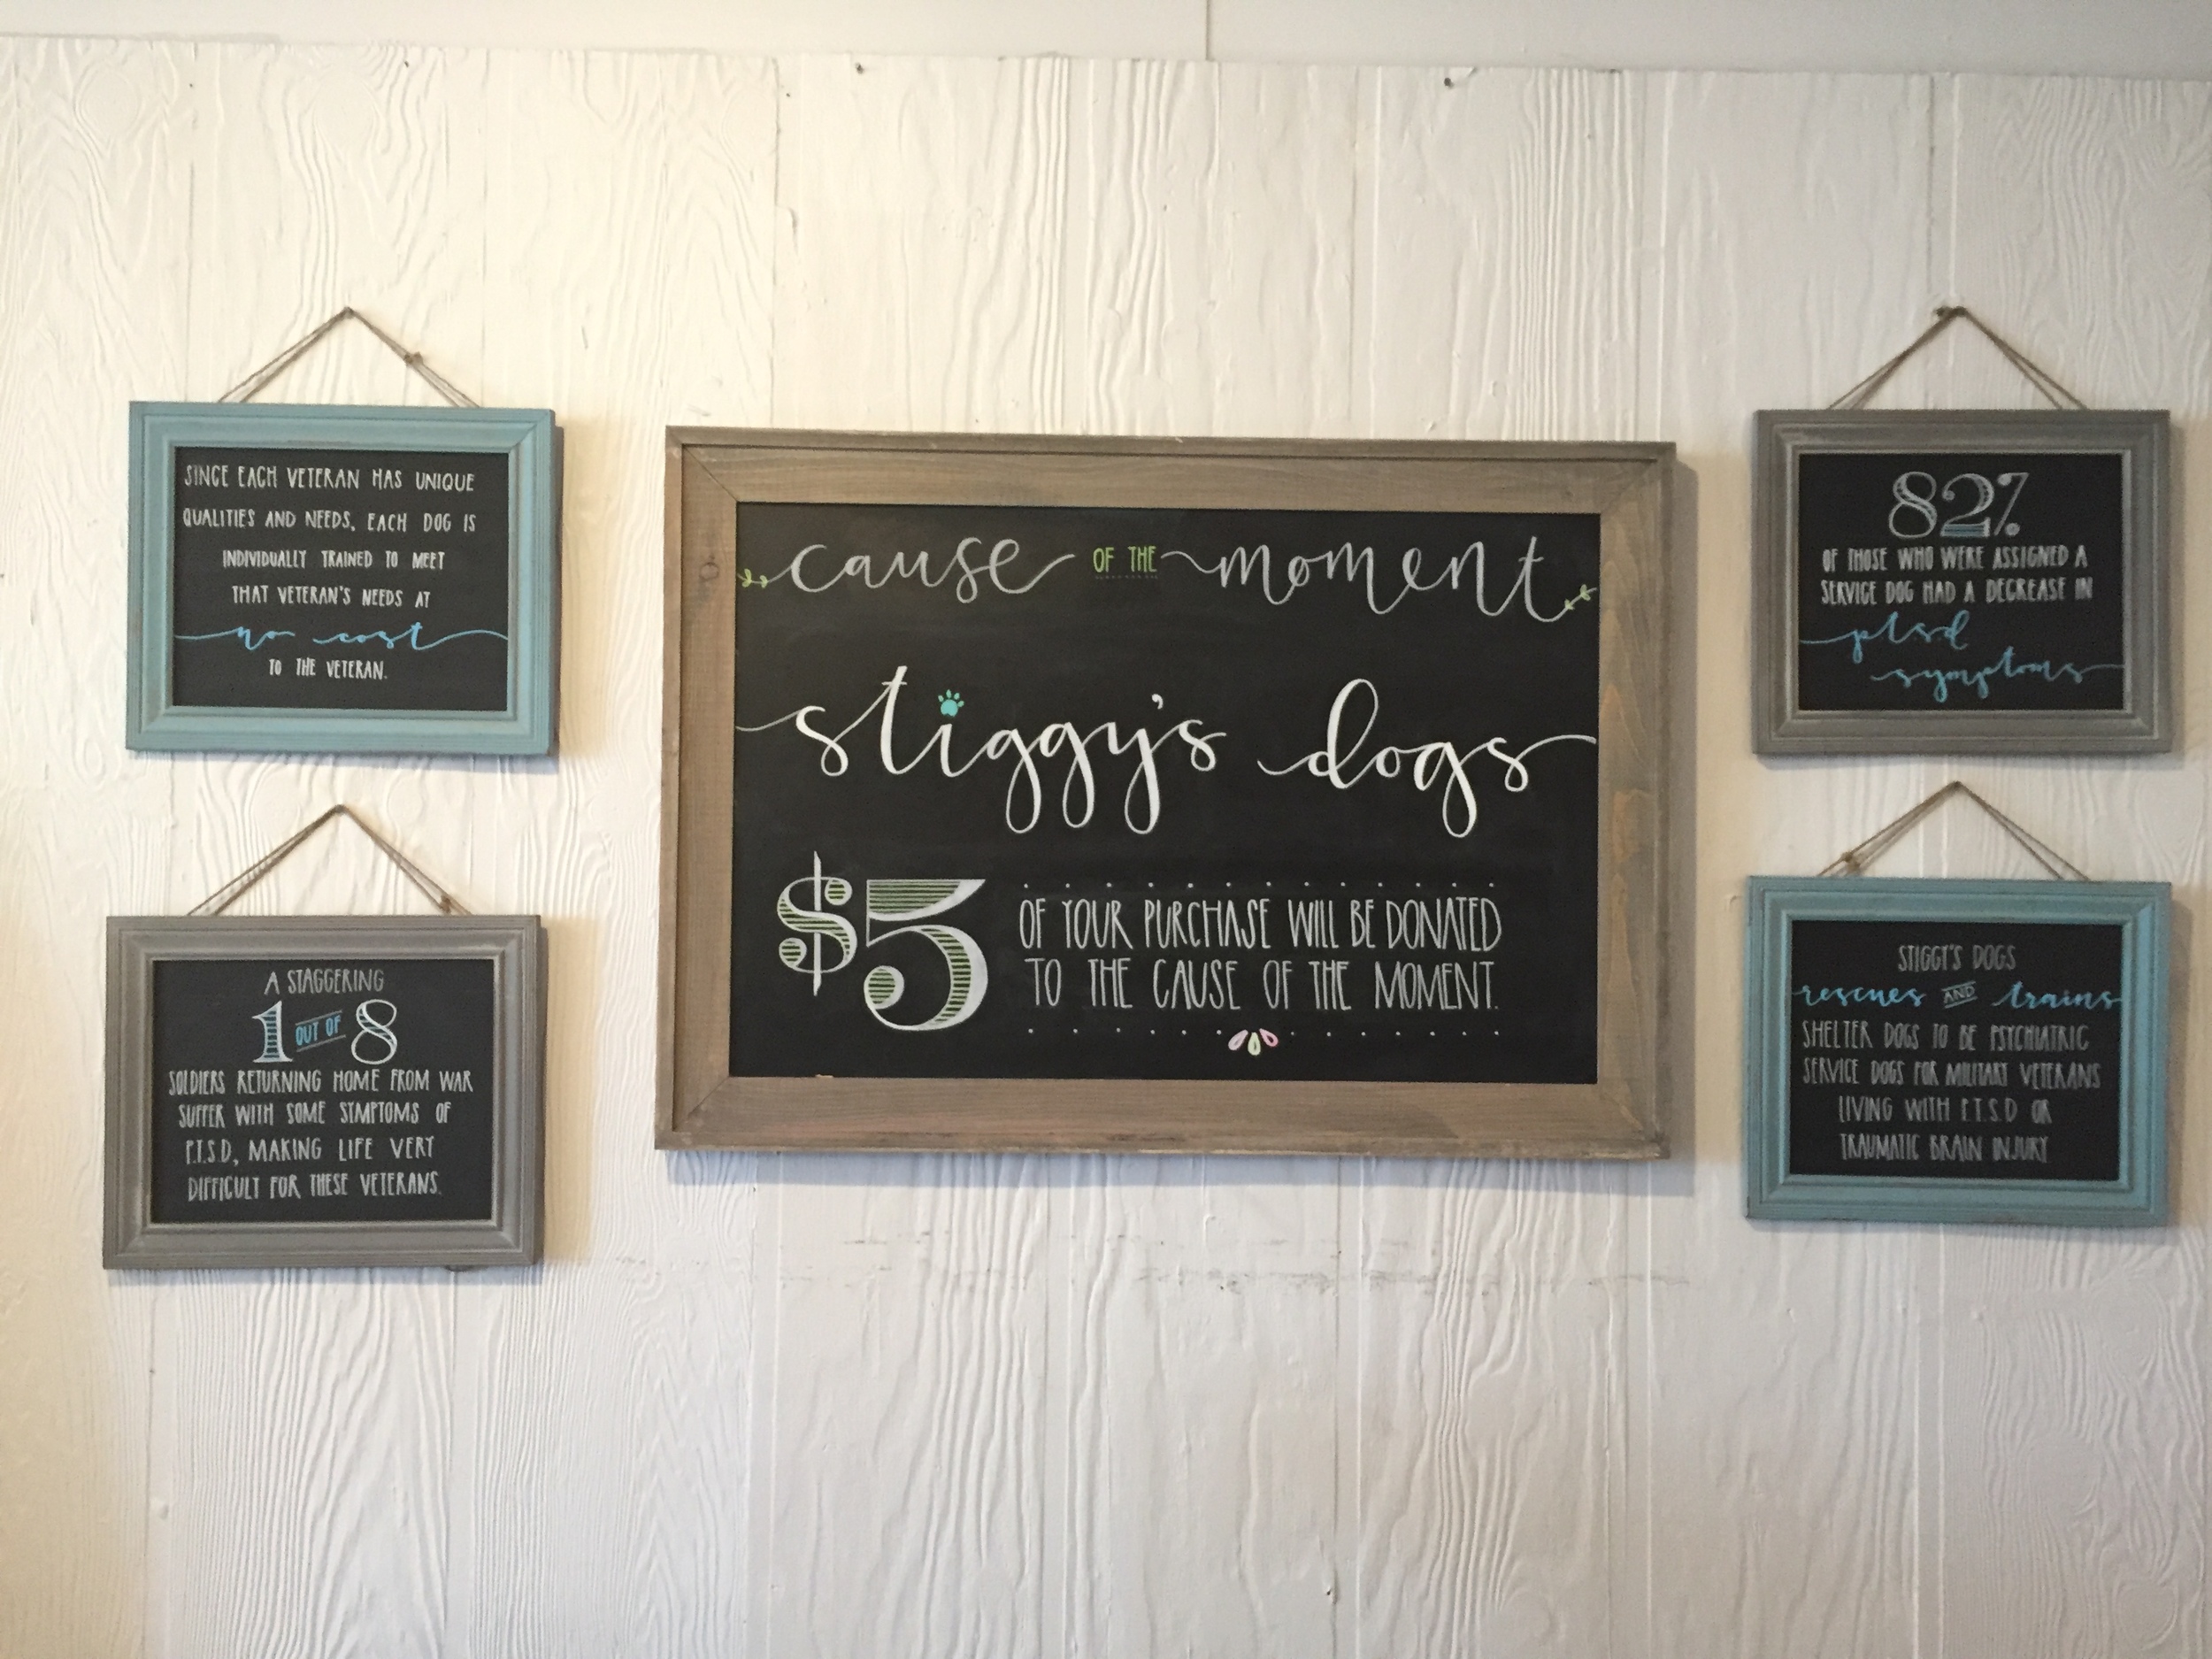 SINCE EACH VETERAN HAS UNIQUE
QUALITIES AND NEEDS, EACH DOG IS
INDIVIDUALLY TRAINED TO MEET
THAT VETERAN'S NEEDS AT
no cost
TO THE VETERAN.
A STAGGERING
1 OUT OF 8
SOLDIERS RETURNING HOME FROM WAR
SUFFER WITH SOME SYMPTOMS OF
P.T.S.D, MAKING LIFE VERY
DIFFICULT FOR THESE VETERANS.
cause OF THE moment
stiggy's dogs
$5 OF YOUR PURCHASE WILL BE DONATED
TO THE CAUSE OF THE MOMENT.
82%
OF THOSE WHO WERE ASSIGNED A
SERVICE DOG HAD A DECREASE IN
ptsd
symptoms
STIGGY'S DOGS
rescues AND trains
SHELTER DOGS TO BE PSYCHIATRIC
SERVICE DOGS FOR MILITARY VETERANS
LIVING WITH P.T.S.D OR
TRAUMATIC BRAIN INJURY